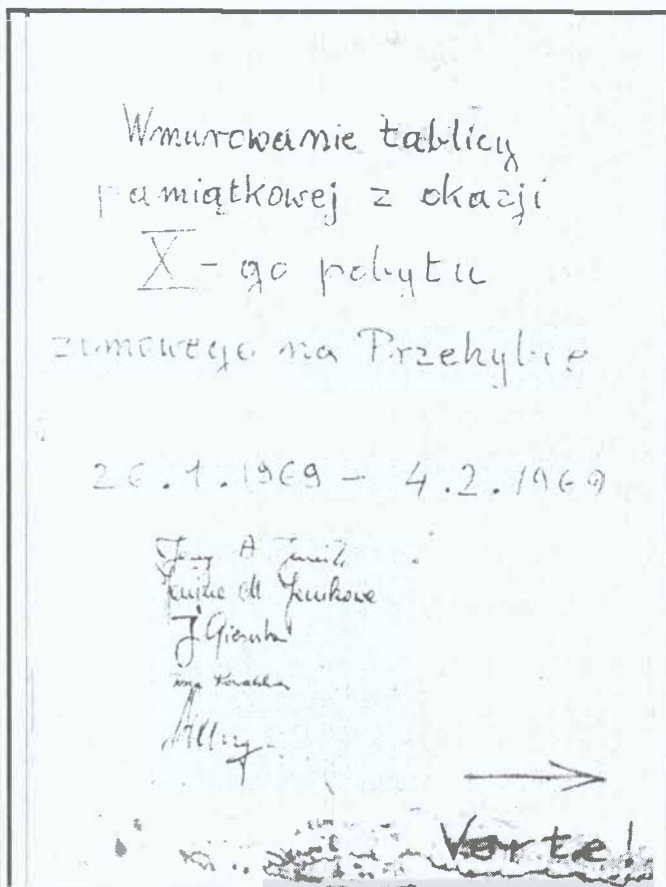 Wmurowanie tablicy
pamiątkowej z okazji
X-go pobytu
zimowego na Przehybie
26.1.1969 - 4.2.1969
Jerzy A
Janina M Jenikowa
J
Verte!